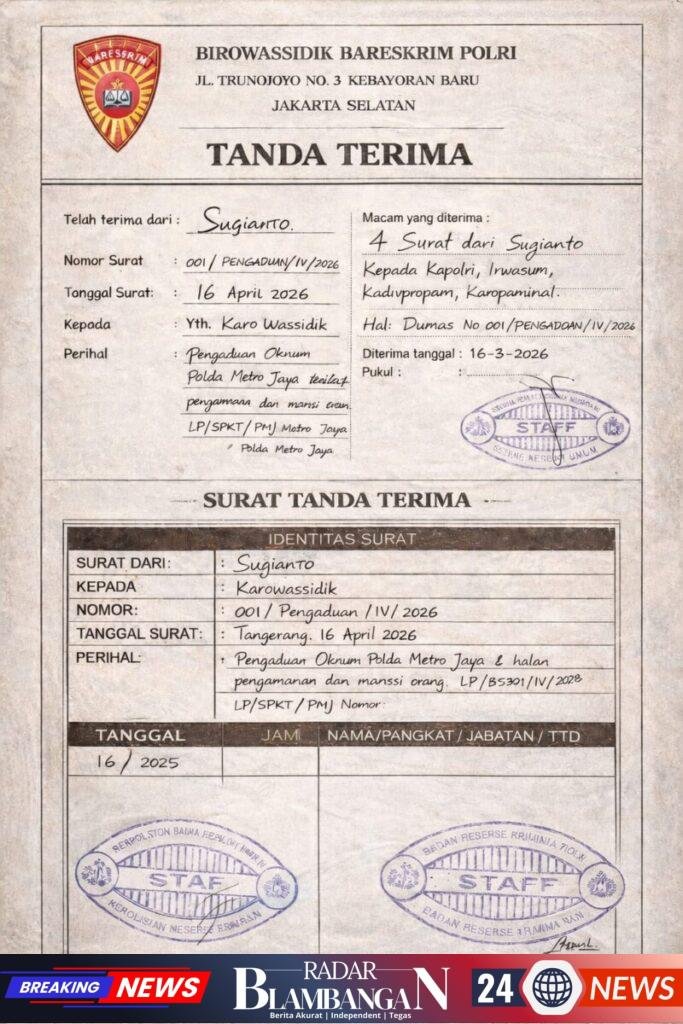 BARESKRIM
BIROWASSIDIK BARESKRIM POLRI
JL. TRUNOJOYO NO. 3 KEBAYORAN BARU
JAKARTA SELATAN
TANDA TERIMA
Telah terima dari : Sugianto.
Nomor Surat : 001/PENGADUAN/IV/2026
Tanggal Surat: : 16 April 2026
Kepada : Yth. Karo Wassidik
Perihal : Pengaduan Oknum
Polda Metro Jaya
dan
LP/SPKT/PMJ Metro Jaya
Polda Metro Jaya
Macam yang diterima :
4 Surat dari Sugianto
Kepada Kapolri, Irwasum,
Kadivpropam, Karopaminal.
Hal: Dumas No 001/PENGADOAN/IV/2026
Diterima tanggal : 16-3-2026
Pukul : :
STAFF
SURAT TANDA TERIMA
IDENTITAS SURAT
SURAT DARI: : Sugianto
KEPADA : Karowassidik
NOMOR: : 001/Pengaduan/IV/2026
TANGGAL SURAT: : Tangerang. 16 April 2026
PERIHAL: : Pengaduan Oknum Polda Metro Jaya & halan
pengamanan dan manssi orang. LP/B5301/IV/2028
LP/SPKT/PMJ Nomor:
TANGGAL JAM NAMA/PANGKAT / JABATAN / TTD
16/ 2025
STAF
STAFF
BADAN RESERSE
BREAKING NEWS
RADAR
BLAMBANGAN
Berita Akurat | Independent | Tegas
24 NEWS